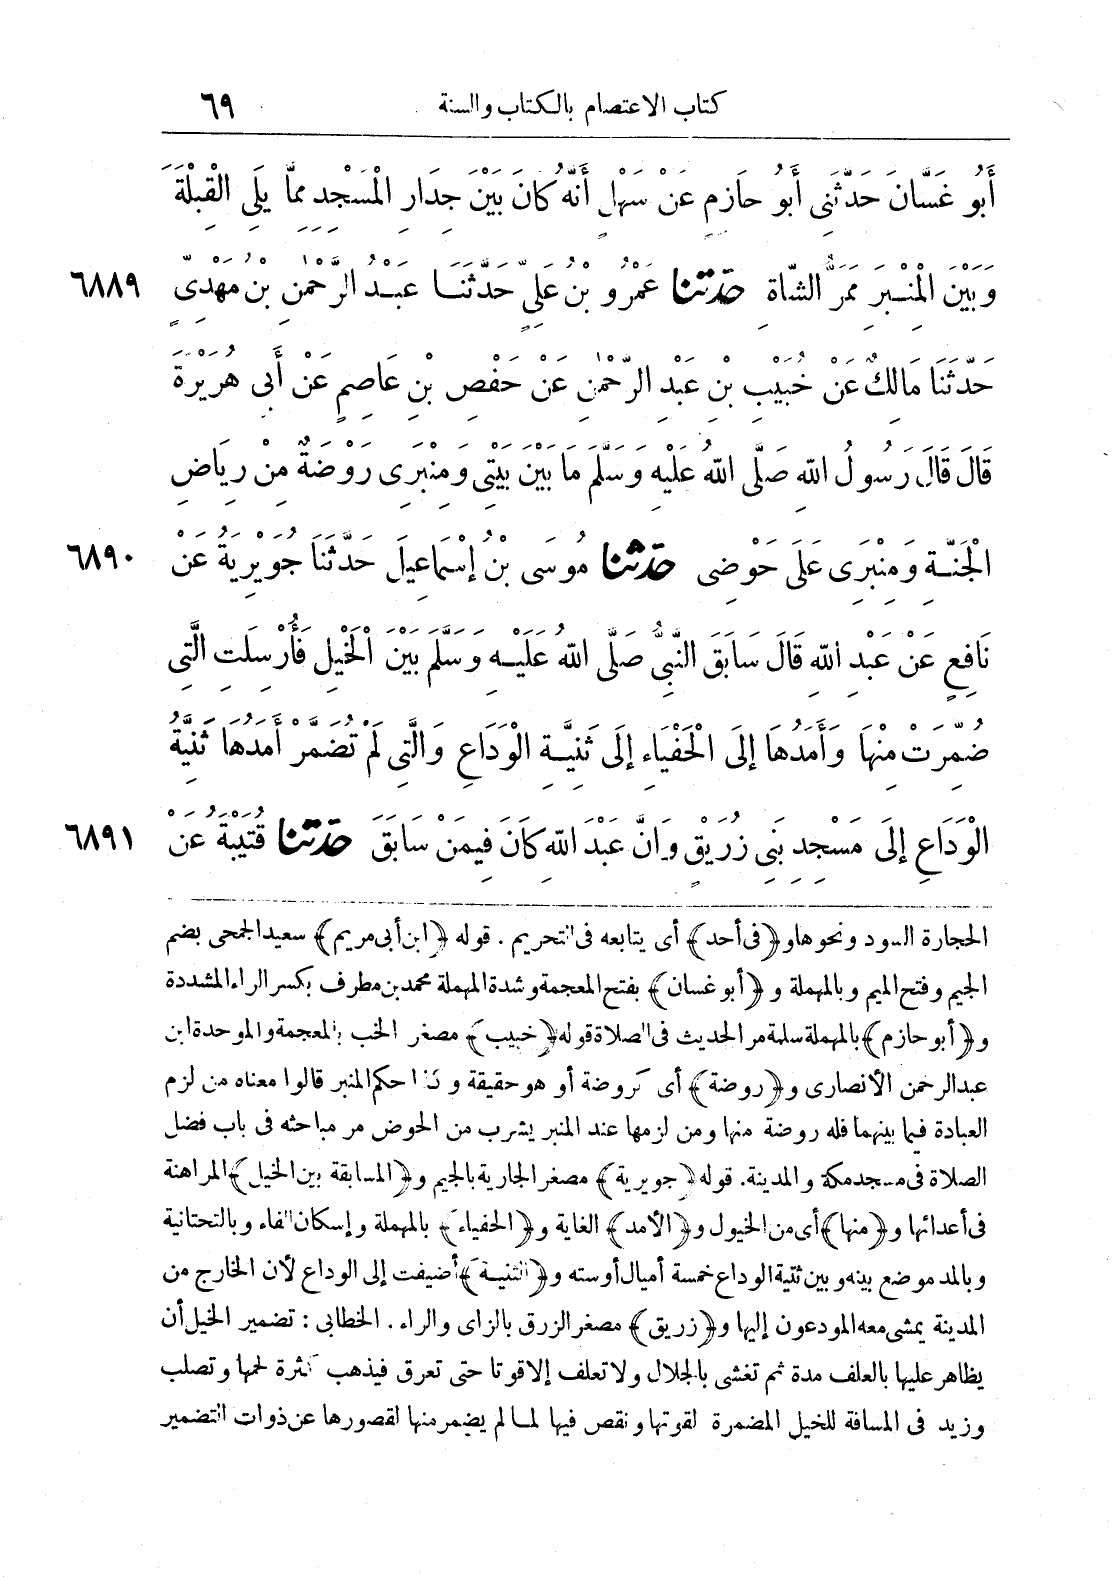 كتاب الاعتصام بالكتاب والسنة ٦٩
أَبُو غَسَّانَ حَدَّثَنِى أَبُو حَازِمٍ عَنْ سَهْلٍ أَنَّهُ كَانَ بَيْنَ جِدَارِ الْمَسْجِدِ مِمَّا يَلِى الْقِبْلَةَ
وَبَيْنَ الْمِنْبَرِ مَمَرُّ الشَّاةِ حَدَّثَنا عَمْرُو بْنُ عَلِىٍّ حَدَّثَنَا عَبْدُ الرَّحْمٰنِ بْنُ مَهْدِىٍّ ٦٨٨٩
حَدَّثَنَا مَالِكٌ عَنْ خُبَيْبِ بْنِ عَبْدِ الرَّحْمٰنِ عَنْ حَفْصِ بْنِ عَاصِمٍ عَنْ أَبِى هُرَيْرَةَ
قَالَ قَالَ رَسُولُ اللهِ صَلَّى اللهُ عَلَيْهِ وَسَلَّمَ مَا بَيْنَ بَيْتِى وَمِنْبَرِى رَوْضَةٌ مِنْ رِيَاضِ
الْجَنَّةِ وَمِنْبَرِى عَلَى حَوْضِى حَدَّثَنا مُوسَى بْنُ إِسْمَاعِيلَ حَدَّثَنَا جُوَيْرِيَةُ عَنْ ٦٨٩٠
نَافِعٍ عَنْ عَبْدِ اللهِ قَالَ سَابَقَ النَّبِىُّ صَلَّى اللهُ عَلَيْهِ وَسَلَّمَ بَيْنَ الْخَيْلِ فَأُرْسِلَتِ الَّتِى
ضُمِّرَتْ مِنْهَا وَأَمَدُهَا إِلَى الْحَفْيَاءِ إِلَى ثَنِيَّةِ الْوَدَاعِ وَالَّتِى لَمْ تُضَمَّرْ أَمَدُهَا ثَنِيَّةُ
الْوَدَاعِ إِلَى مَسْجِدِ بَنِى زُرَيْقٍ وَانَّ عَبْدَ اللهِ كَانَ فِيمَنْ سَابَقَ حَدَّثَنا قُتَيْبَةُ عَنْ ٦٨٩١
الحجارة السود ونحوها و﴿فى أحد﴾ أى يتابعه فى التحريم . قوله ﴿ابن أبى مريم﴾ سعيد الجمحى بضم
الجيم وفتح الميم وبالمهملة و ﴿أبو غسان﴾ بفتح المعجمة وشدة المهملة محمد بن مطرف بكسر الراء المشددة
و﴿أبو حازم﴾ بالمهملة سلمة مر الحديث فى الصلاة قوله ﴿خبيب﴾ مصغر الخب بالمعجمة والموحدة ابن
عبد الرحمن الأنصارى و﴿روضة﴾ أى كروضة أو هو حقيقة وكذا حكم المنبر قالوا معناه من لزم
العبادة فيما بينهما فله روضة منها ومن لزمها عند المنبر يشرب من الحوض مر مباحثه فى باب فضل
الصلاة فى مسجد مكة والمدينة. قوله ﴿جويرية﴾ مصغر الجارية بالجيم و﴿المسابقة بين الخيل﴾ المراهنة
فى أعدائها و﴿منها﴾ أى من الخيول و﴿الأمد﴾ الغاية و﴿الحفياء﴾ بالمهملة وإسكان الفاء وبالتحتانية
وبالمد موضع بينه وبين ثنية الوداع خمسة أميال أو ستة و﴿الثنية﴾ أضيفت إلى الوداع لأن الخارج من
المدينة يمشى معه المودعون إليها و﴿زريق﴾ مصغر الزرق بالزاى والراء . الخطابى : تضمير الخيل أن
يظاهر عليها بالعلف مدة ثم تغشى بالجلال ولا تعلف إلا قوتا حتى تعرق فيذهب كثرة لحمها وتصلب
وزيد فى المسافة للخيل المضمرة لقوتها ونقص فيها لما لم يضمر منها لقصورها عن ذوات التضمير